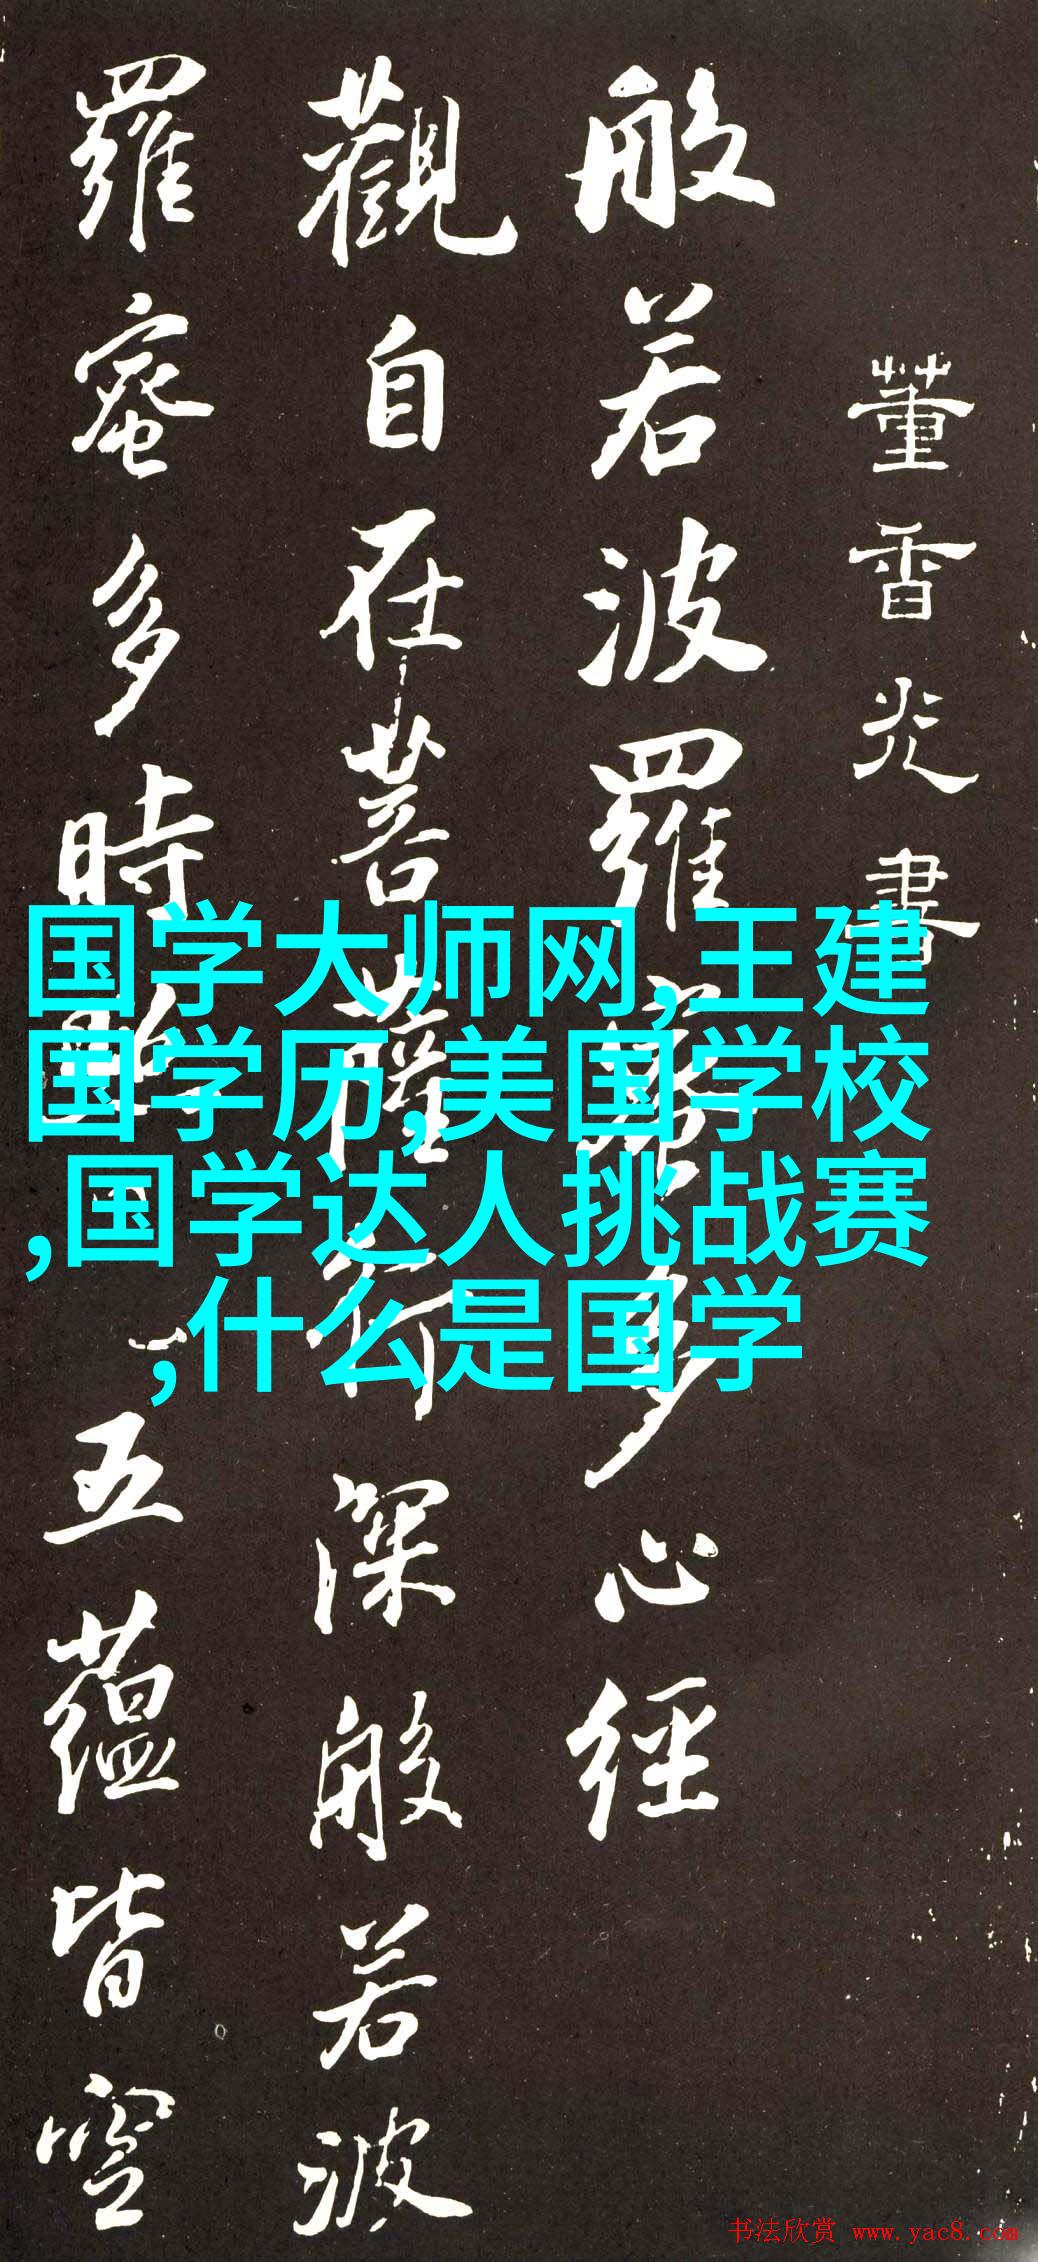 董香光書
般若波羅蜜多心経
觀自在菩薩行深般若波
羅蜜多時照見五蘊皆空
国学大师网,王建
国学历,美国学校
,国学达人挑战赛
,什么是国学
书法欣赏 www.yac8.com